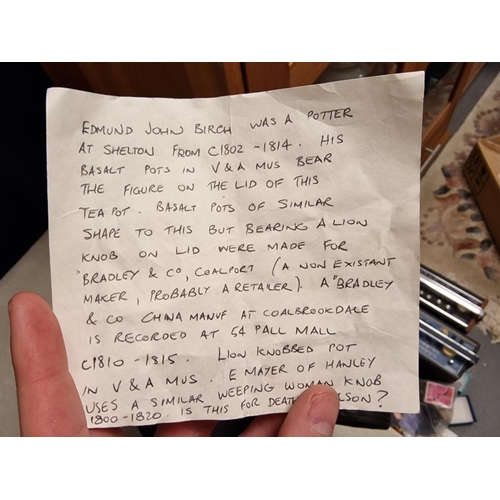 EDMUND JOHN BIRCH WAS A POTTER
AT SHELTON FROM C1802 - 1814. HIS
BASALT POTS IN V & A MUS BEAR
THE FIGURE ON THE LID OF THIS
TEA POT. BASALT POTS OF SIMILAR
SHAPE TO THIS BUT BEARING A LION
KNOB ON LID WERE MADE FOR
"BRADLEY & CO, COALPORT (A NON EXISTANT
MAKER, PROBABLY A RETAILER). A "BRADLEY
& CO CHINA MANUF AT COALBROOKDALE
IS RECORDED AT 54 PALL MALL
C1810 - 1815. LION KNOBBED POT
IN V & A MUS. E MAYER OF HANLEY
USES A SIMILAR WEEPING WOMAN KNOB
1800-1820. IS THIS FOR DEATH ?